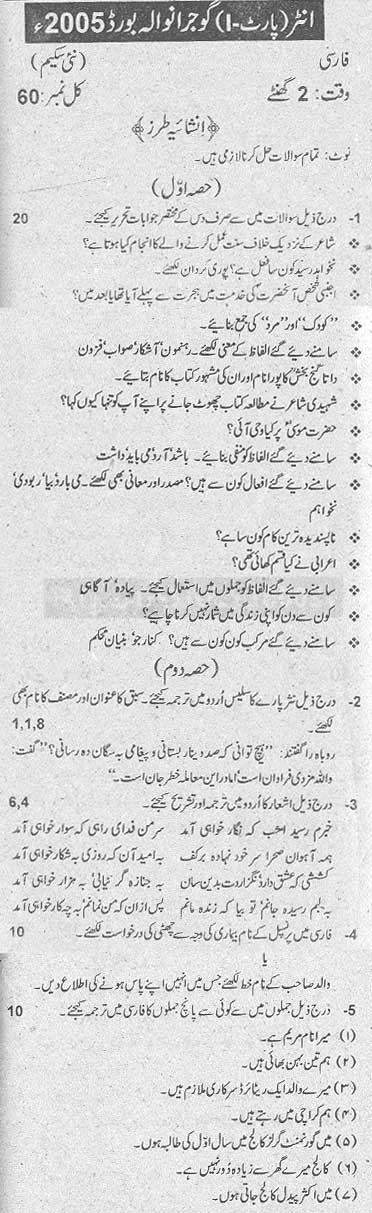 انٹر (پارٹ-I) گوجرانوالہ بورڈ 2005ء
فارسی (نئی سکیم)
وقت: 2 گھنٹے کل نمبر: 60
﴿انشائیہ طرز﴾
نوٹ: تمام سوالات حل کرنا لازمی ہیں۔
(حصہ اوّل)
1- درج ذیل سوالات میں سے صرف دس کے مختصر جوابات تحریر کیجئے۔ 20
❖ شاعر کے نزدیک خلاف سنت عمل کرنے والے کا انجام کیا ہوتا ہے؟
❖ نخواہد رسید کون سا فعل ہے؟ پوری گردان لکھئے۔
❖ اجنبی شخص آنحضرتؐ کی خدمت میں ہجرت سے پہلے آیا تھا یا بعد میں؟
❖ ''کودک'' اور ''مرد'' کی جمع بنائیے۔
❖ سامنے دیئے گئے الفاظ کے معنی لکھئے۔ رہنمون' آشکار' صواب' فزون
❖ داتا گنج بخشؒ کا پورا نام اور ان کی مشہور کتاب کا نام بتائیے۔
❖ شہیدی شاعر نے مطالعہ کتاب چھوٹ جانے پر اپنے آپ کو تنہا کیوں کہا؟
❖ حضرت موسیٰؑ پر کیا وحی آئی؟
❖ سامنے دیئے گئے الفاظ کو منفی بنائیے۔ باشد' آرد' می باید' داشت
❖ سامنے دیئے گئے افعال کون سے ہیں؟ مصدر اور معانی بھی لکھئے۔ می بارد' بیا' ربودی'
نخواہم
❖ ناپسندیدہ ترین کام کون سا ہے؟
❖ اعرابی نے کیا قسم کھائی تھی؟
❖ سامنے دیئے گئے الفاظ کو جملوں میں استعمال کیجئے۔ پیادہ' آگاہی
❖ کون سے دن کو اپنی زندگی میں شمار نہیں کرنا چاہیے؟
❖ سامنے دیئے گئے مرکب کون کون سے ہیں؟ کنار جو' بنیان محکم
(حصہ دوم)
2- درج ذیل نثر پارے کا سلیس اُردو میں ترجمہ کیجئے۔ سبق کا عنوان اور مصنف کا نام بھی
لکھئے۔ 1,1,8
روباہ را گفتند: ''ہیچ توانی کہ صد دینار بستانی و پیغامی بہ سگان دہ رسانی؟'' گفت:
''واللہ مزدی فراوان است' اما در این معاملہ خطر جان است۔''
3- درج ذیل اشعار کا اُردو میں ترجمہ اور تشریح کیجئے۔ 6,4
خبرم رسید امشب کہ نگار خواہی آمد سر من فدای راہی کہ سوار خواہی آمد
ہمہ آہوان صحرا سر خود نہادہ برکف بہ امید آن کہ روزی بہ شکار خواہی آمد
کششی کہ عشق دارد نگزاردت بدین سان بہ جنازہ گر نیائی بہ مزار خواہی آمد
بہ لبم رسیدہ جانم' تو بیا کہ زندہ مانم پس ازان کہ من نمانم بہ چہ کار خواہی آمد
4- فارسی میں پرنسپل کے نام بیماری کی وجہ سے چھٹی کی درخواست لکھئے۔ 10
یا
والد صاحب کے نام خط لکھئے جس میں انہیں اپنے پاس ہونے کی اطلاع دیں۔
5- درج ذیل جملوں میں سے کوئی سے پانچ جملوں کا فارسی میں ترجمہ کیجئے۔ 10
(۱) میرا نام مریم ہے۔
(۲) ہم تین بہن بھائی ہیں۔
(۳) میرے والد ایک ریٹائرڈ سرکاری ملازم ہیں۔
(۴) ہم کراچی میں رہتے ہیں۔
(۵) میں گورنمنٹ گرلز کالج میں سال اوّل کی طالبہ ہوں۔
(۶) کالج میرے گھر سے زیادہ دُور نہیں ہے۔
(۷) میں اکثر پیدل کالج جاتی ہوں۔